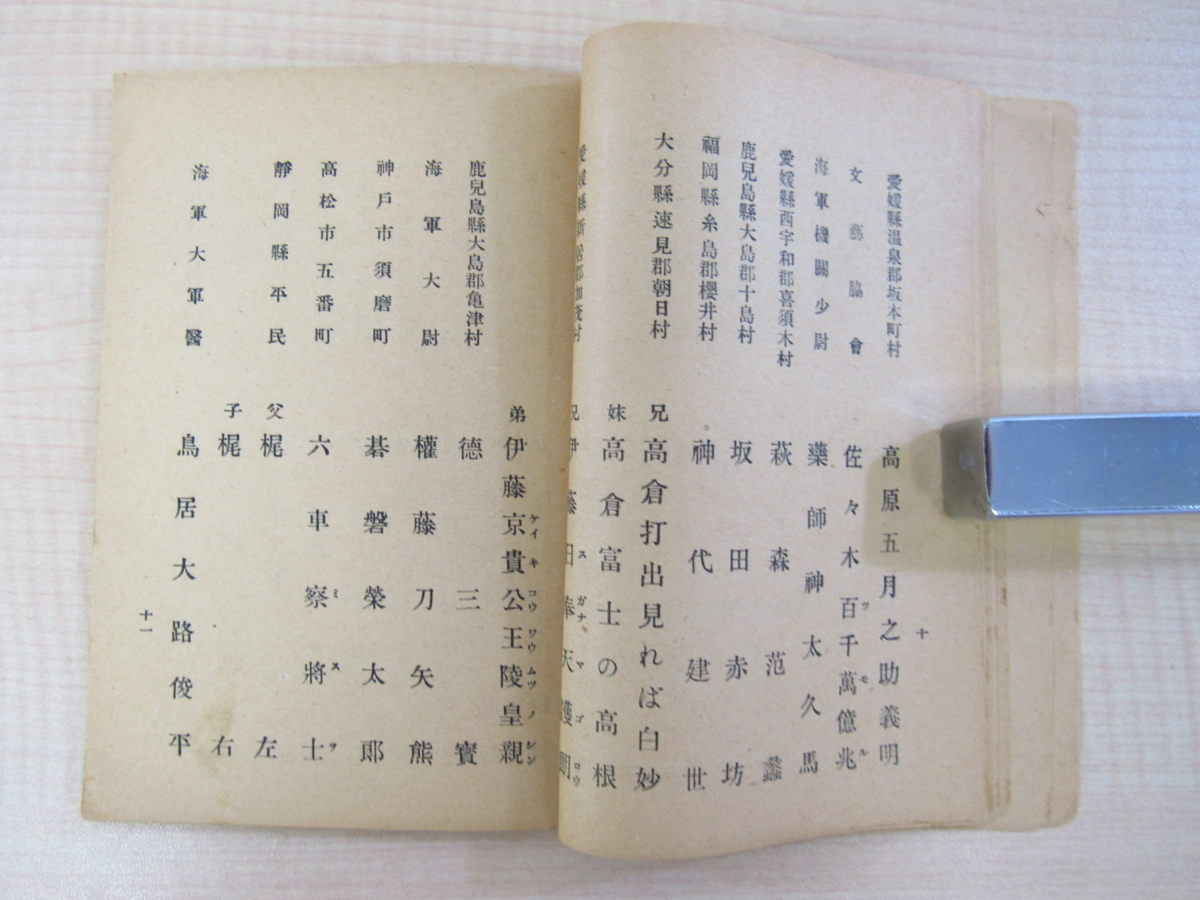 十
愛媛縣温泉郡坂本町村　高原五月之助義明
文藝協會　佐々木百千萬億兆
ツモル
海軍機關少尉　藥師神太久馬
愛媛縣西宇和郡喜須木村　萩森范蠡
鹿兒島縣大島郡十島村　坂田赤坊
福岡縣糸島郡櫻井村　神代建世
大分縣速見郡朝日村　兄　高倉打出見れば白妙
妹　高倉富士の高根
愛媛縣新居郡加茂村　兄　伊藤日奉天護
スガナマゴロウ
弟　伊藤京貴公王陵皇親
ケイキコウワウムツノシン
鹿兒島縣大島郡亀津村　德三寶
海軍大尉　權藤刀矢熊
神戸市須磨町　碁磐榮太郎
高松市五番町　六車察將士
ミスヲ
靜岡縣平民　父　梶左
子　梶右
海軍大軍醫　鳥居大路俊平
十一